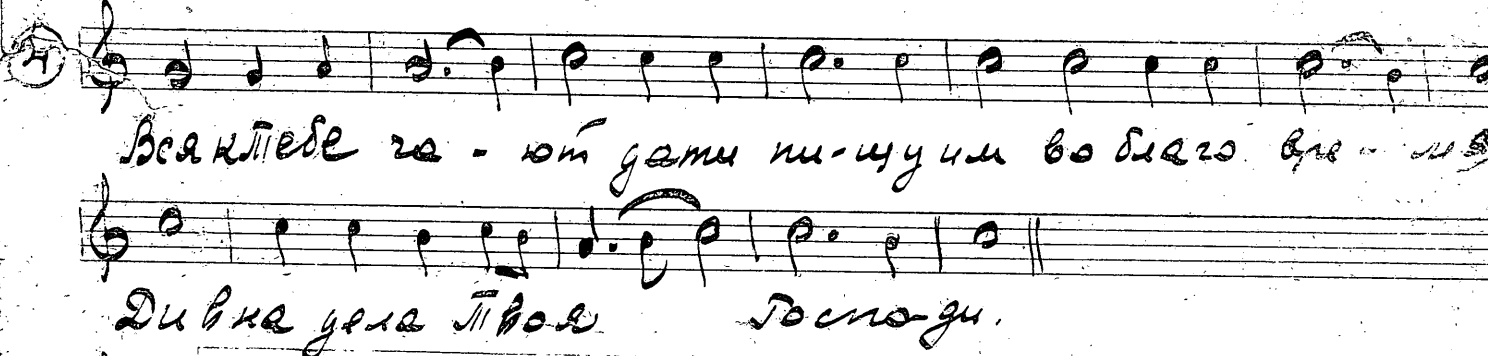 4
Вся к Тебе ча - ют дати пи-щу им во благо вре - мя
Дивна дела Твоя Госпо-ди.